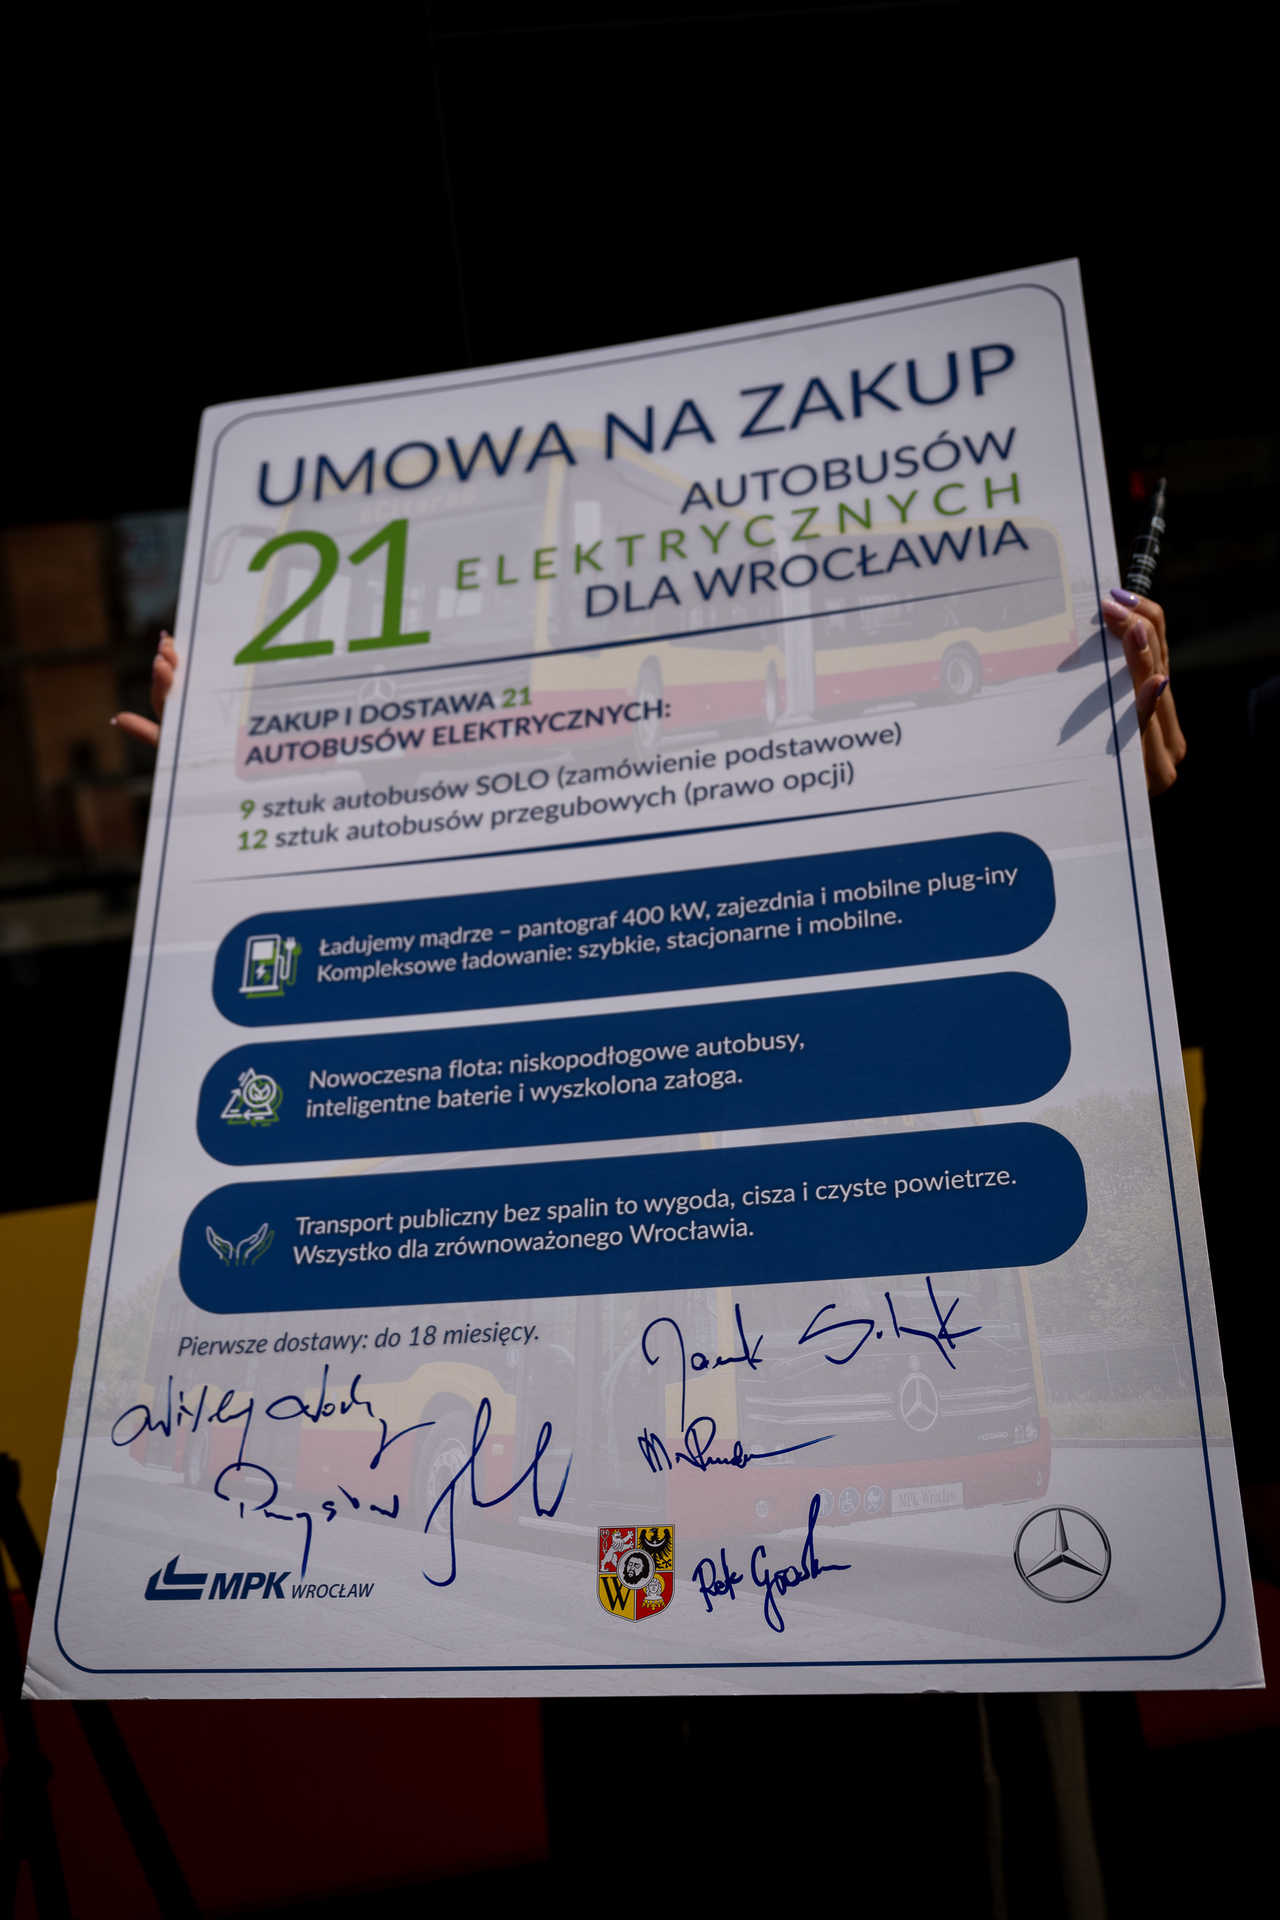 UMOWA NA ZAKUP
21
AUTOBUSÓW
ELEKTRYCZNYCH
DLA WROCŁAWIA
ZAKUP I DOSTAWA 21
AUTOBUSÓW ELEKTRYCZNYCH:
9 sztuk autobusów SOLO (zamówienie podstawowe)
12 sztuk autobusów przegubowych (prawo opcji)
Ładujemy mądrze – pantograf 400 kW, zajezdnia i mobilne plug-iny
Kompleksowe ładowanie: szybkie, stacjonarne i mobilne.
Nowoczesna flota: niskopodłogowe autobusy,
inteligentne baterie i wyszkolona załoga.
Transport publiczny bez spalin to wygoda, cisza i czyste powietrze.
Wszystko dla zrównoważonego Wrocławia.
Pierwsze dostawy: do 18 miesięcy.
MPK Wrocław
MPK WROCŁAW
W